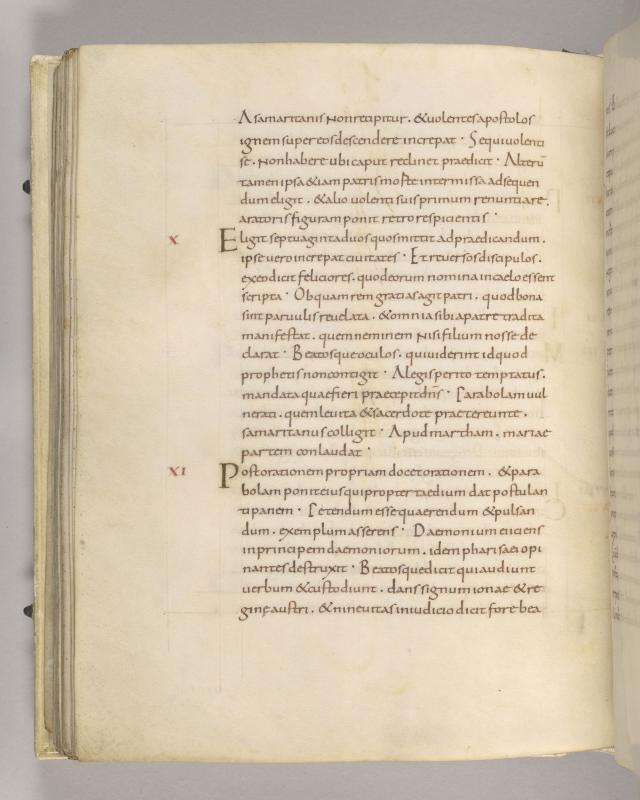 A samaritanis non recipitur. & uolentes apostolos
ignem super eos descendere increpat. Sequi uolenti
se. non habere ubi caput reclinet praedicit. Alterū
tamen ipsa &iam patris morte intermissa adsequen
dum eligit. & alio uolenti suis primum renuntiare.
aratoris figuram ponit retro respicientis.
X Eligit septuaginta duos quos mittit ad praedicandum.
ipse uero increpat ciuitates. Et reuersos discipulos.
ex eo dicit feliciores. quod eorum nomina in caelo essent
scripta. Ob quam rem gratias agit patri. quod bona
sint paruulis reuelata. & omnia sibi a patre tradita
manifestat. quem neminem nisi filium nosse de
clarat. Beatosque oculos. qui uiderint id quod
prophetis non contigit. A legis perito temptatus.
mandata quae fieri praecepit dn̄s. Parabolam uul
nerati. quem leuita & sacerdote praetereunte.
samaritanus colligit. Apud martham. mariae
partem conlaudat.
XI Post orationem propriam docet orationem. & para
bolam ponit eius qui propter taedium dat postulan
ti panem. Petendum esse quaerendum & pulsan
dum. exemplum asserens. Daemonium eiciens
in principem daemoniorum. idem pharisaei opi
nantes destruxit. Beatosque dicit qui audiunt
uerbum & custodiunt. dans signum ionae & re
ginę austri. & nineuitas in iudicio dicit fore bea